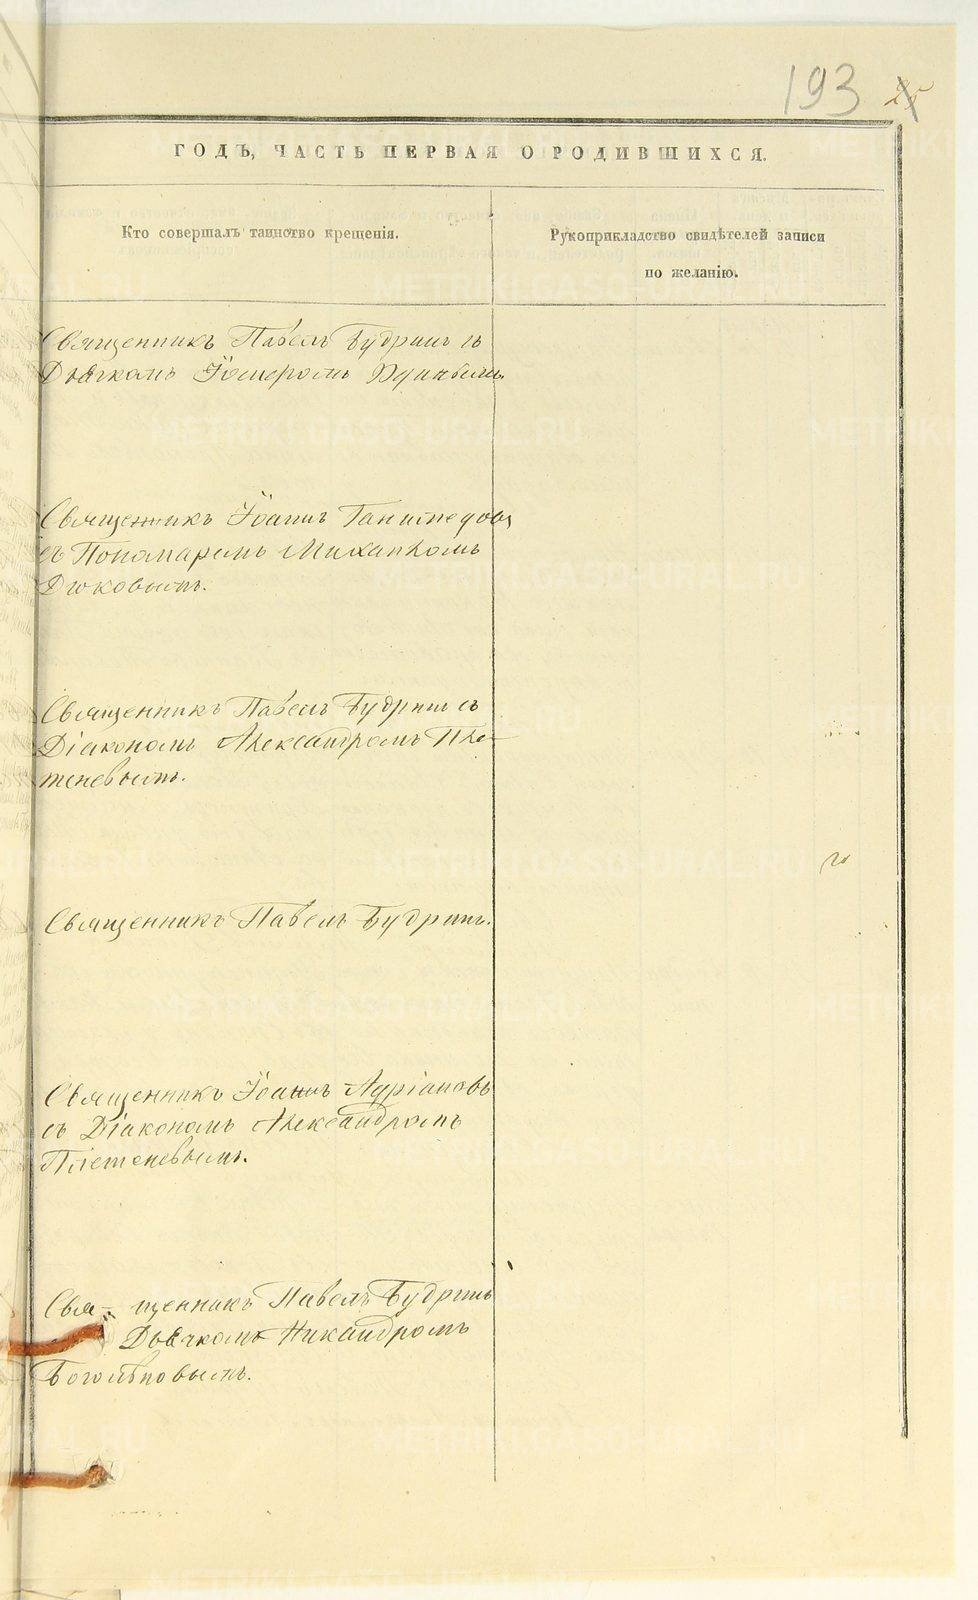 193
ГОДЪ, ЧАСТЬ ПЕРВАЯ О РОДИВШИХСЯ.
Кто совершалъ таинство крещенія.
Рукоприкладство свидѣтелей записи
по желанію.
Священникъ Павелъ Будринъ съ
Дьячкомъ
Священникъ Іоаннъ
съ Пономаремъ Михаиломъ
Дюковымъ.
Священникъ Павелъ Будринъ съ
Діакономъ Александромъ Пле-
теневымъ.
Священникъ Павелъ Будринъ.
Священникъ Іоаннъ Адріановъ
съ Діакономъ Александромъ
Плетеневымъ.
Свя- щенникъ Павелъ Будринъ
Дьячкомъ Никандромъ
Боголѣповымъ.
METRIKI.GASO-URAL.RU